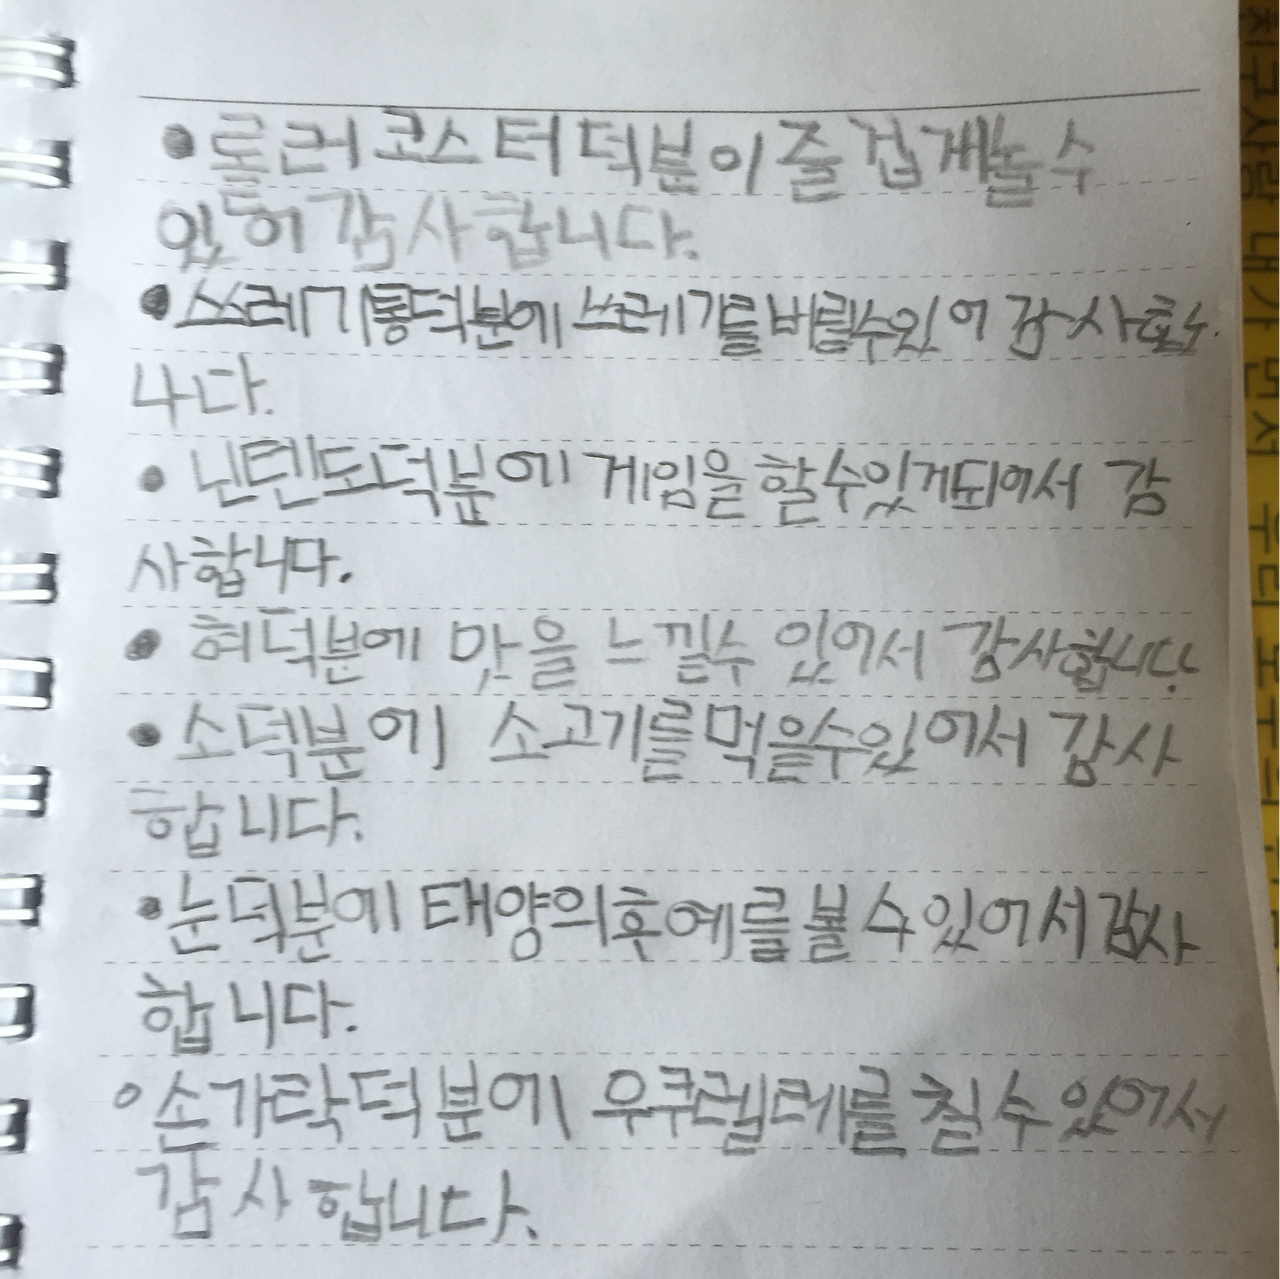 롤러코스터덕분이즐겁게놀수
있어감사합니다.
쓰레기통덕분에쓰레기를버릴수있어감사합
니다.
닌텐도덕분에게임을할수있게되어서 감
사합니다.
혀덕분에 맛을 느낄수 있어서 감사합니다.
소덕분에 소고기를먹을수있어서 감사
합니다.
눈덕분에 태양의후예를볼수있어서감사
합니다.
손가락덕분에 우쿠렐레를칠수있어서
감사합니다.